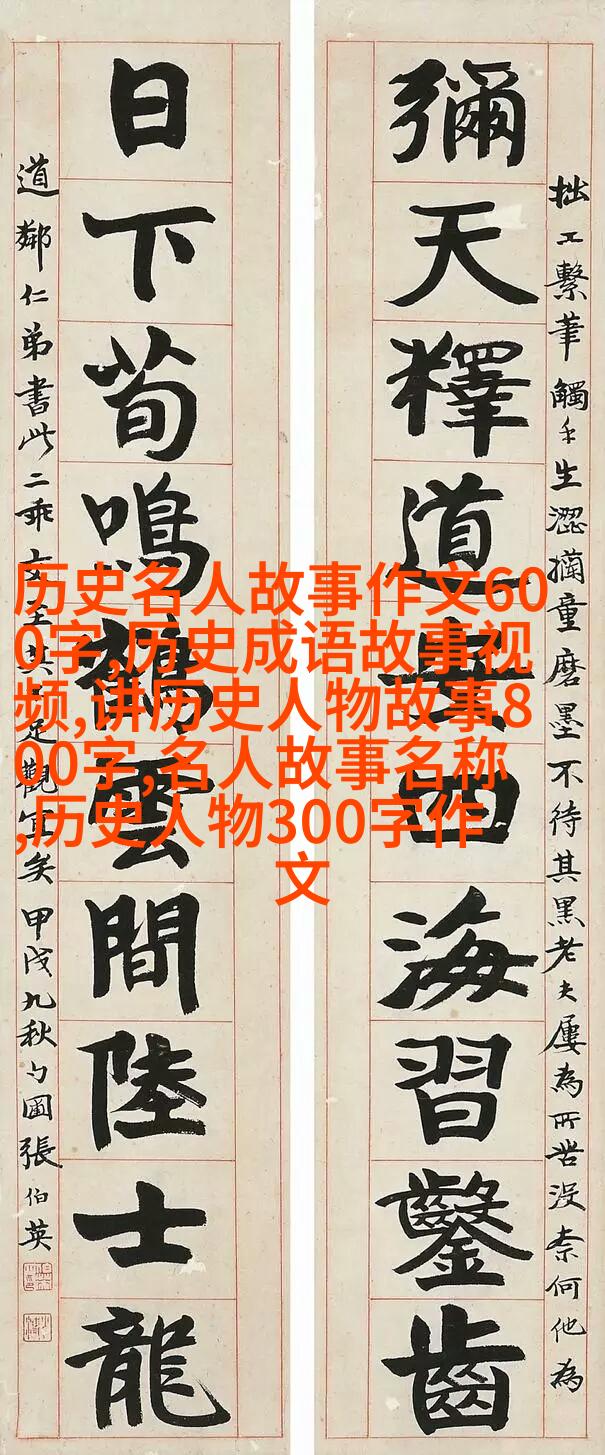 拙工繫筆觸手生澀童磨墨不待其黑老夫屢為所苦沒柰何他為
彌天釋道安四海習鑿齒
日下荀鳴鶴雲間陸士龍
道鄰仁弟書此二乖交至其不足觀宜矣甲戌九秋勺圃張伯英
历史名人故事作文60
0字,历史成语故事视
频,讲历史人物故事8
00字,名人故事名称
,历史人物300字作
文